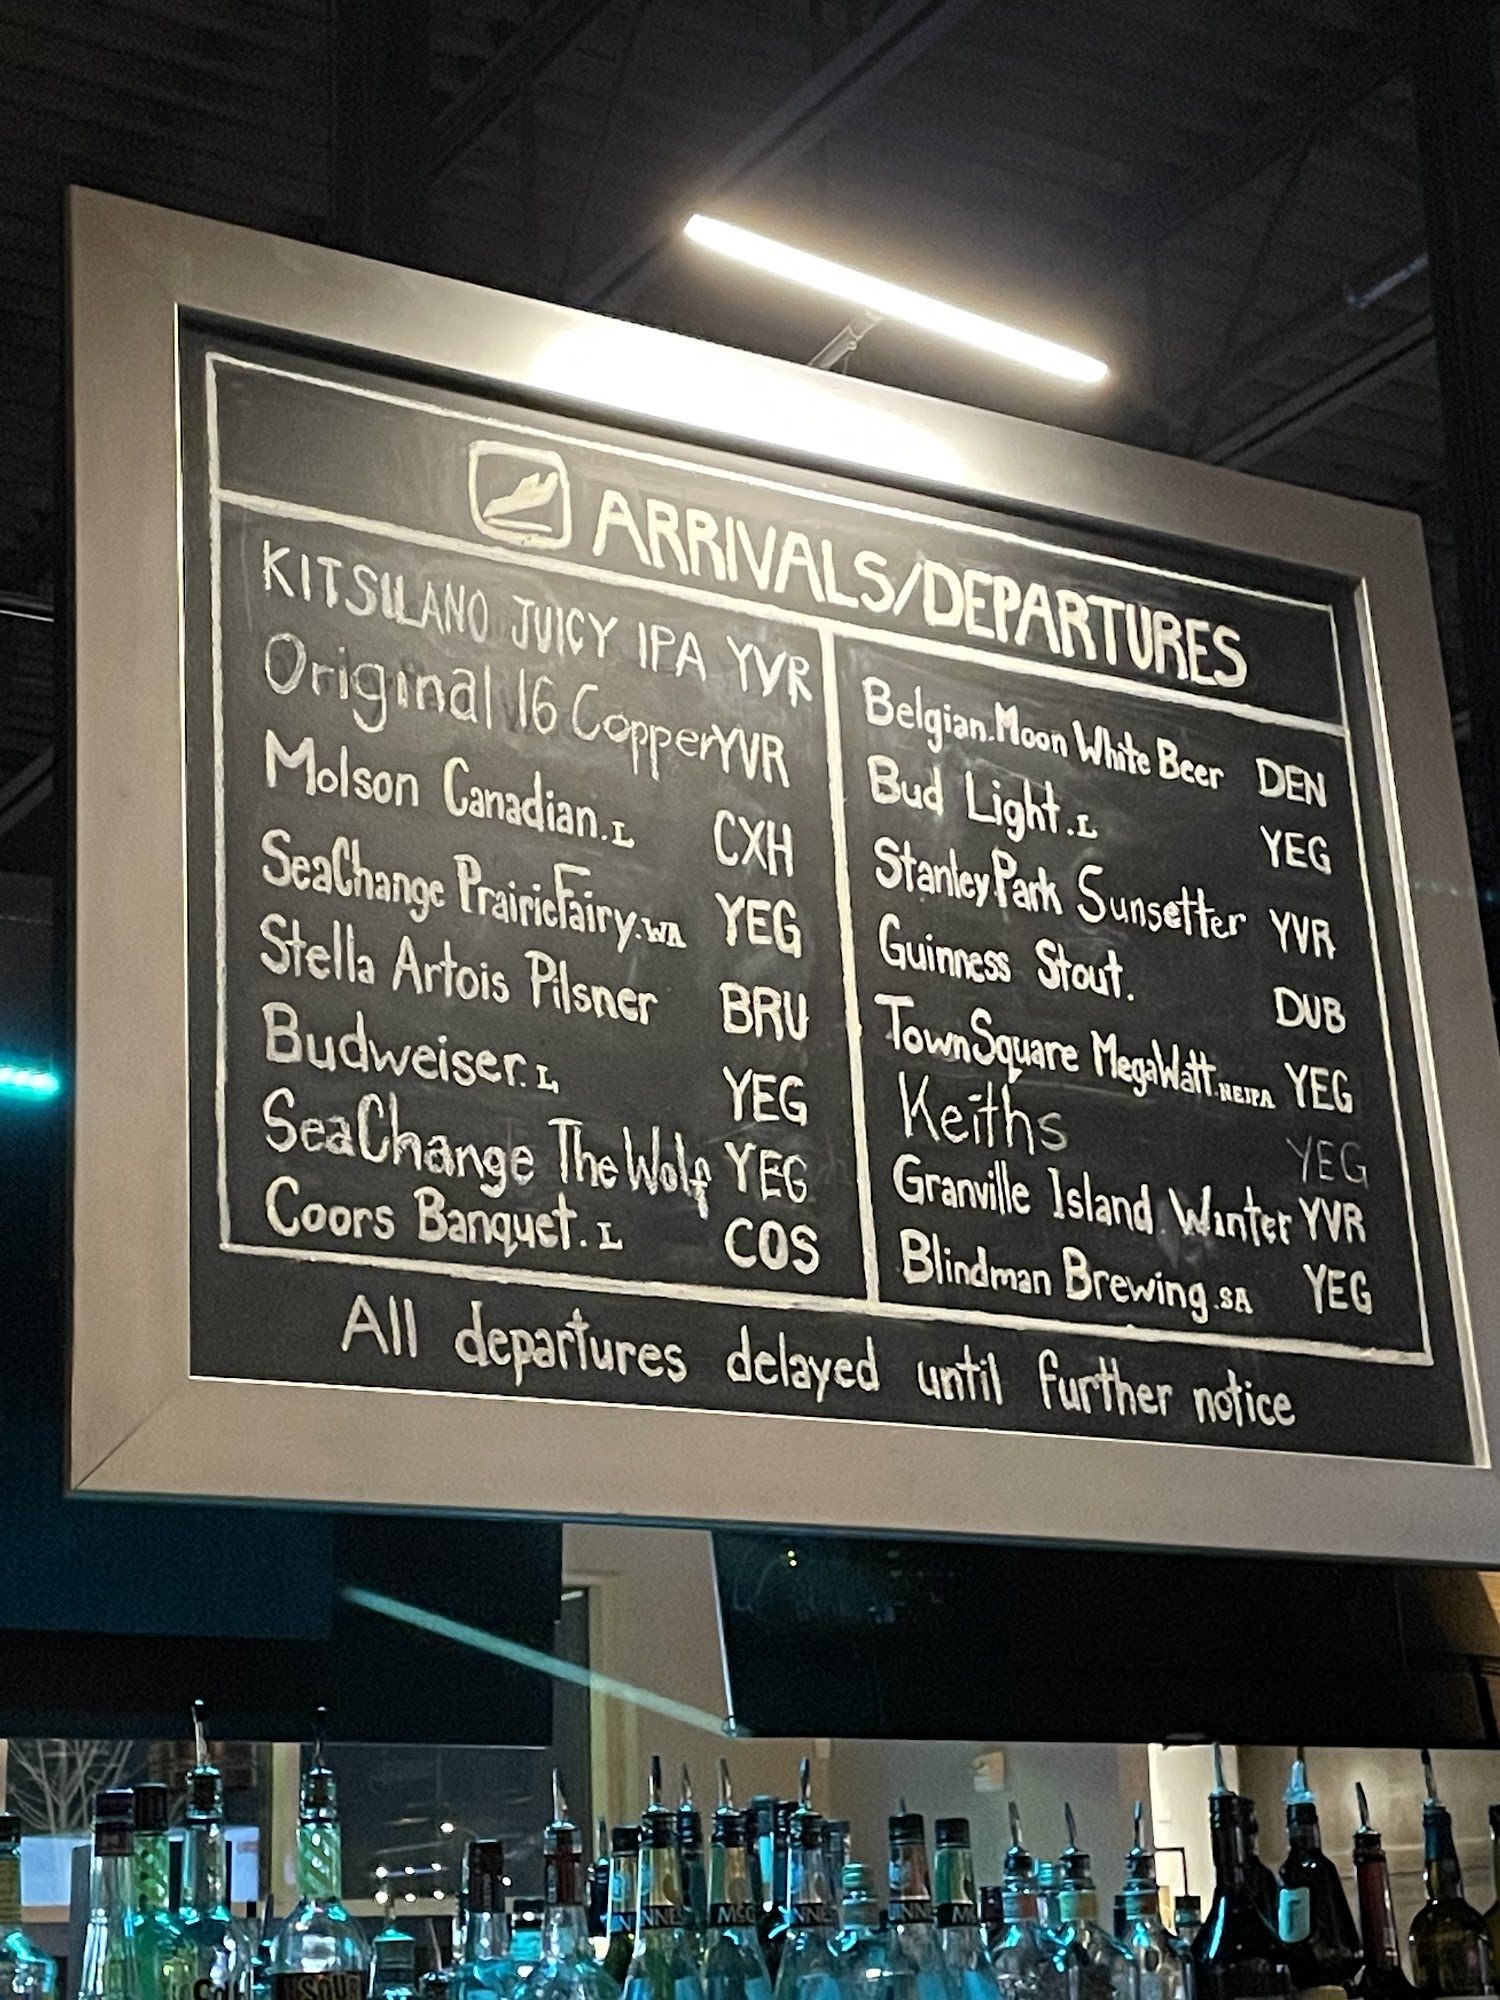 ARRIVALS/DEPARTURES
KITSILANO JUICY IPA YVR
Original 16 Copper YVR
Molson Canadian.L CXH
SeaChange PrairieFairy.WA YEG
Stella Artois Pilsner BRU
Budweiser.L YEG
SeaChange The Wolf YEG
Coors Banquet.L COS
Belgian.Moon White Beer DEN
Bud Light.L YEG
Stanley.Park Sunsetter YVR
Guinness Stout. DUB
TownSquare MegaWatt.NEIPA YEG
Keiths YEG
Granville Island.Winter YVR
Blindman Brewing.SA YEG
All departures delayed until further notice
SOUR